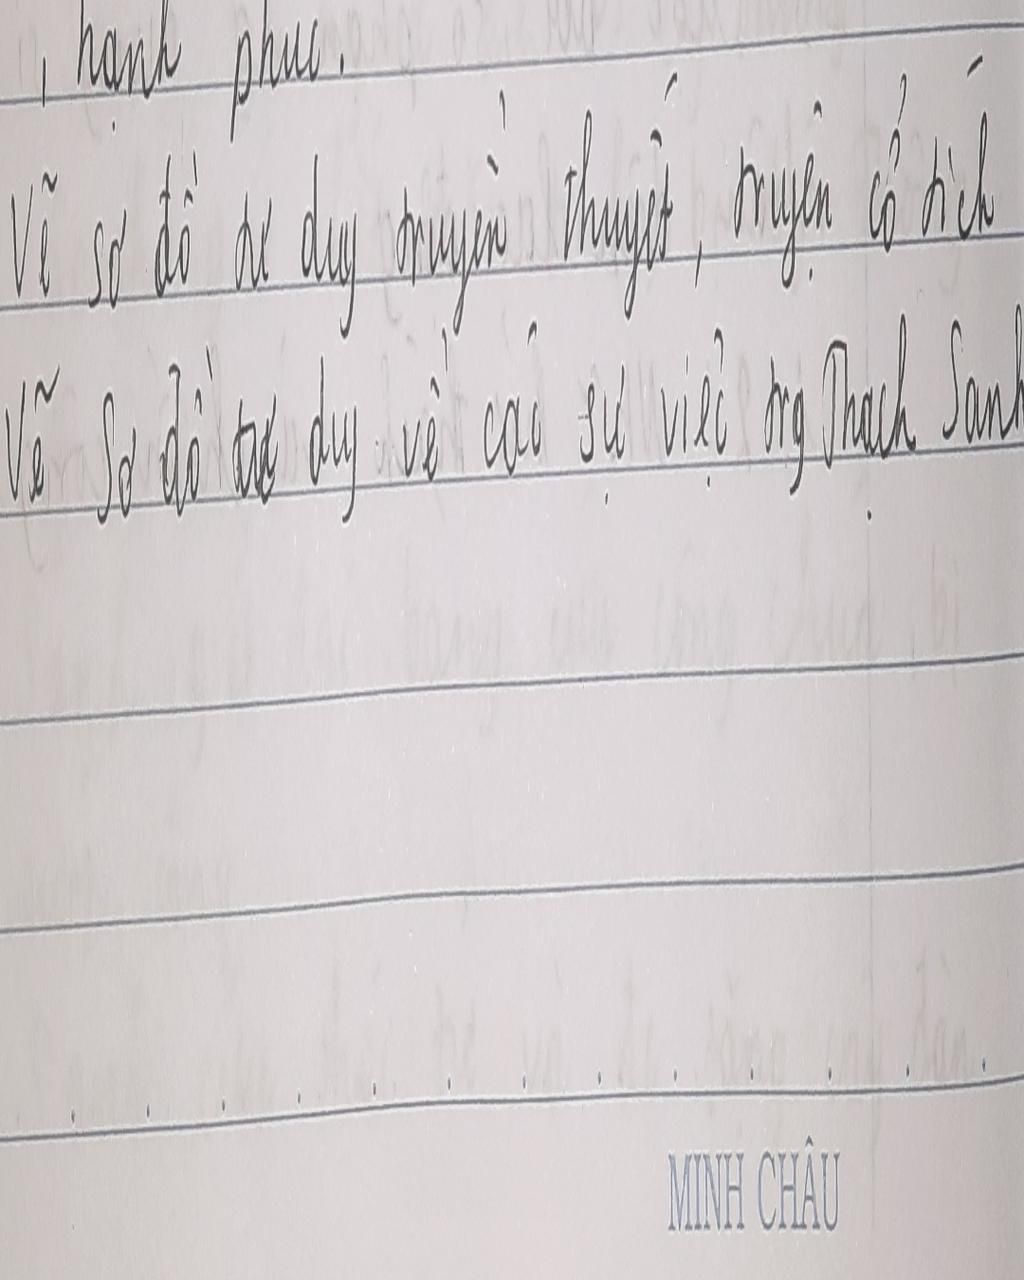 , hạnh phuc.
Vẽ sơ đồ tư duy truyền thuyết, truyện cổ tích
Vẽ sơ đồ tư duy về các sự việc trg Thạch Sanh
MINH CHÂU